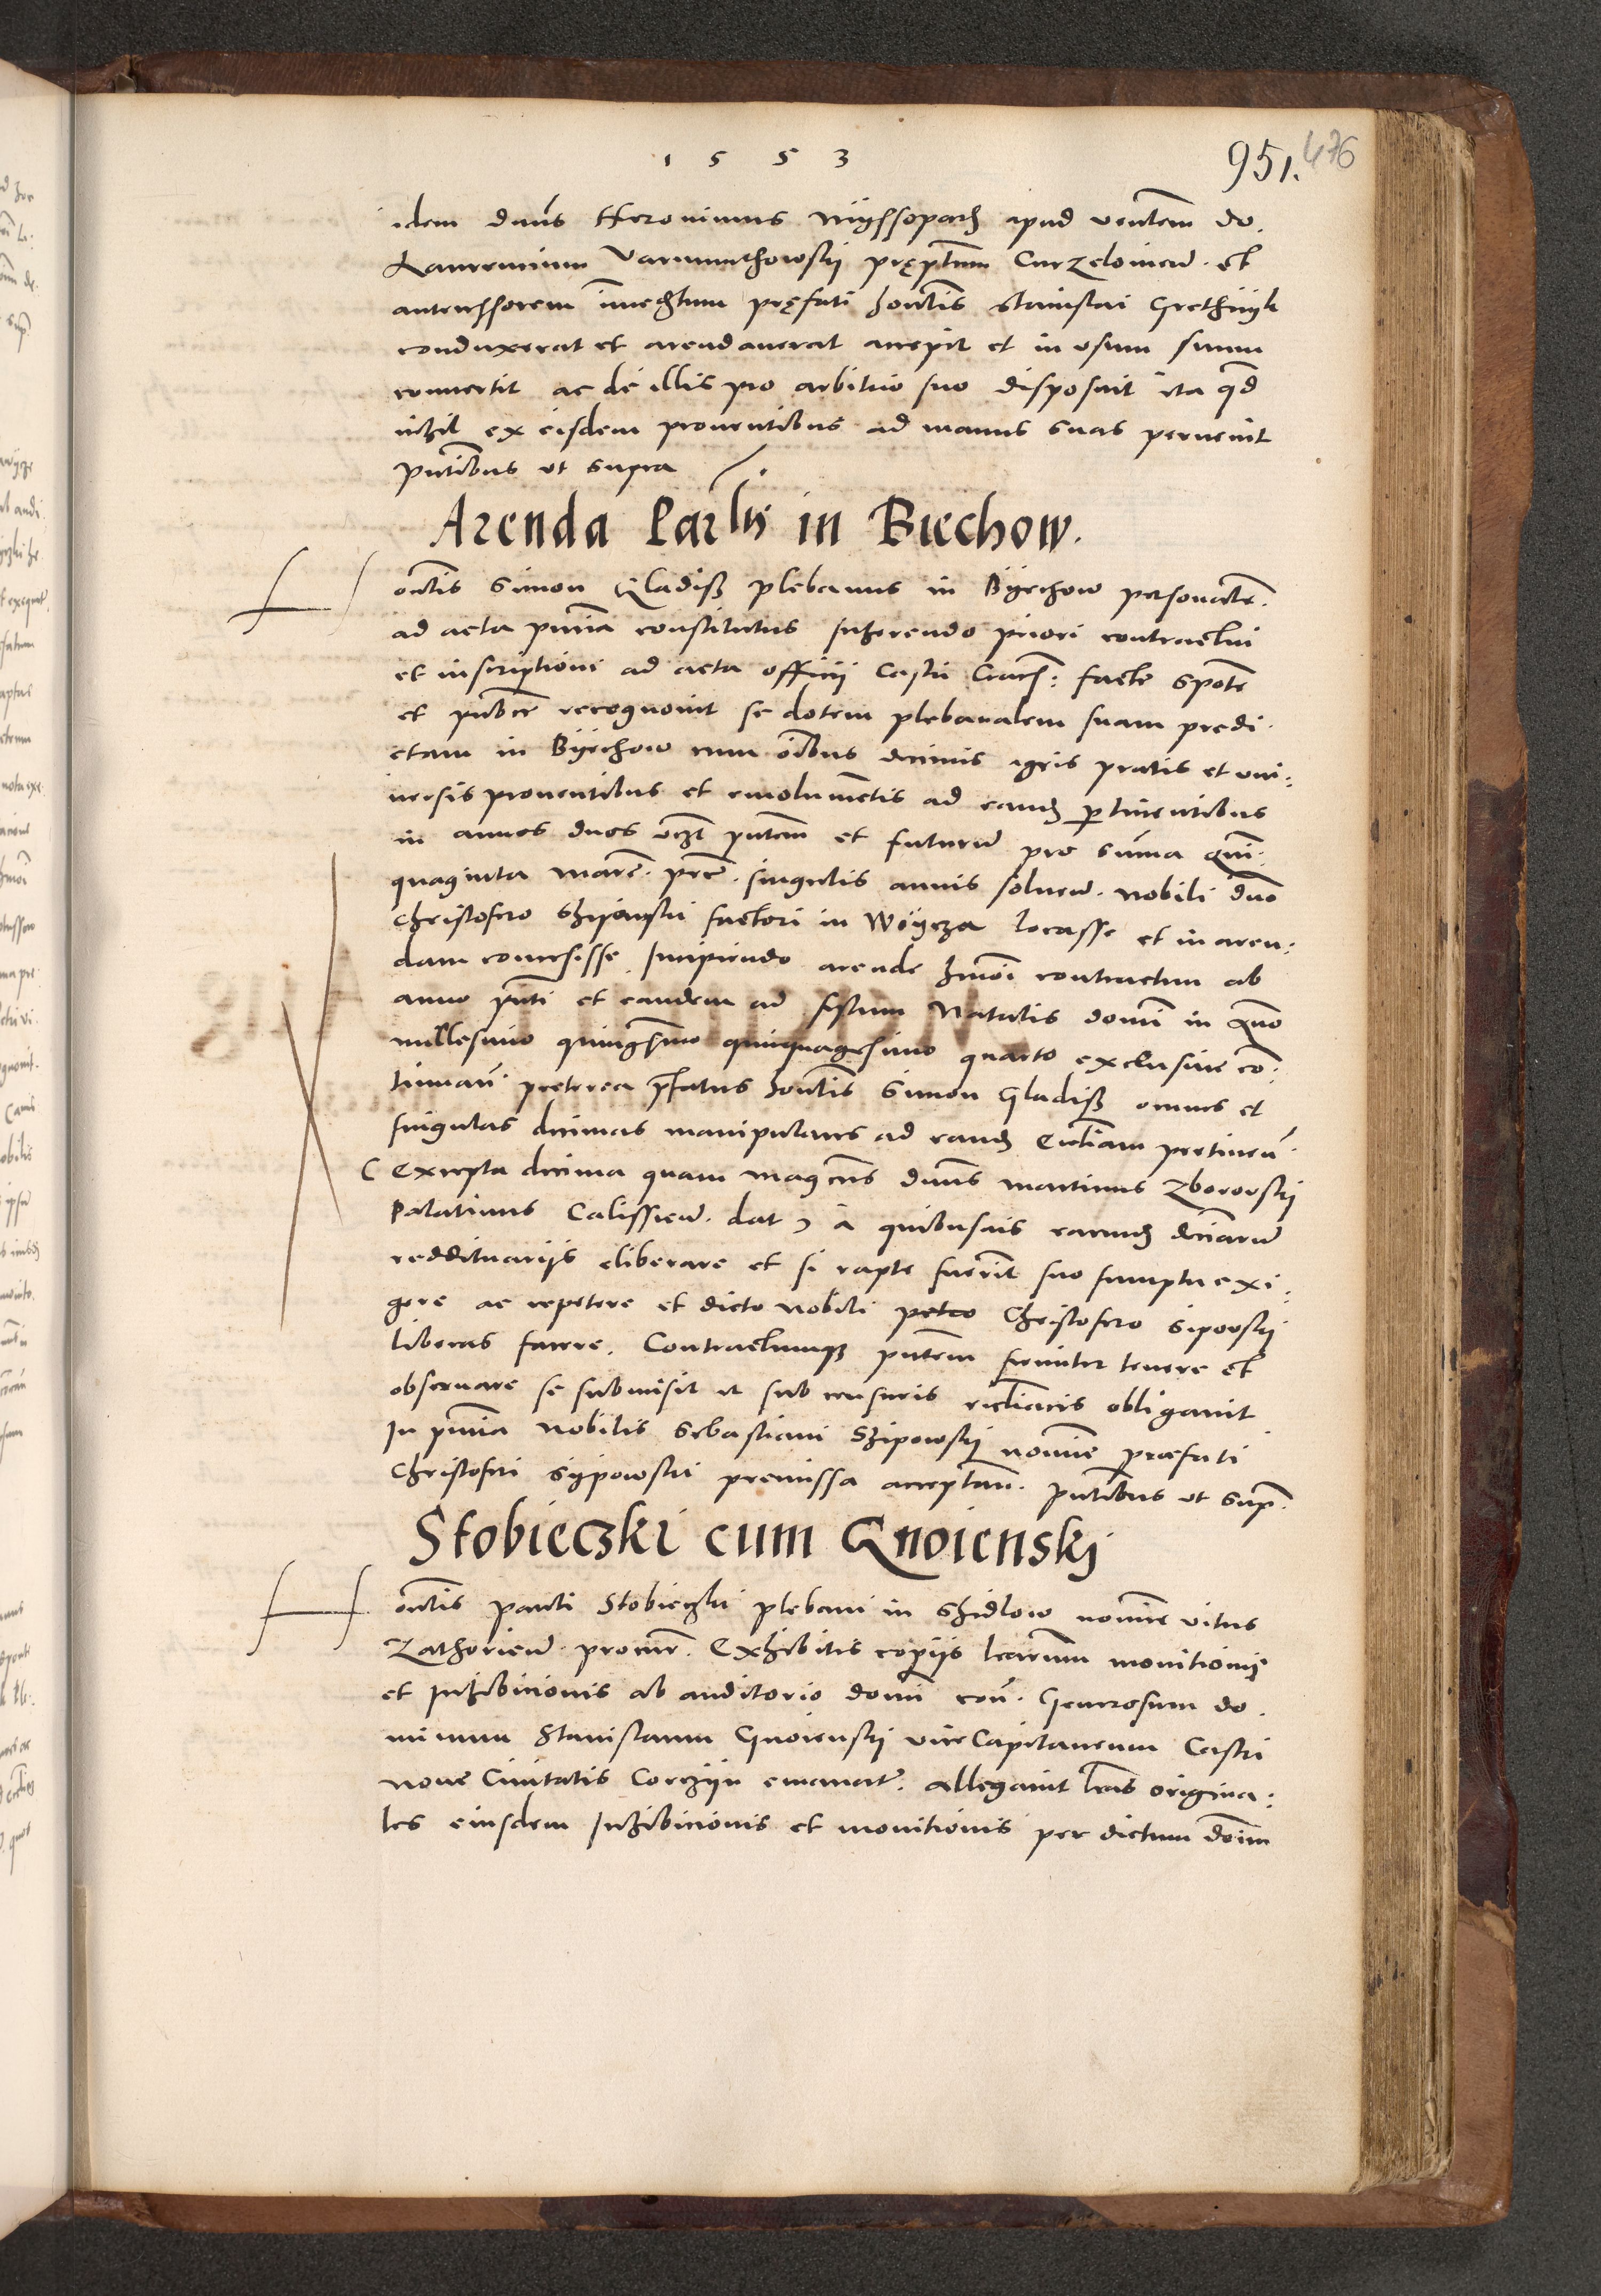 1553
951. 476
idem dnūs Hieronimus Wyssopach apud venlem do.
Laurencium Varmunthowskij pręptum Curzelovien. et
antecessorem immedtum pręfati honlis Stanislai Grethnyk
conduxerat et arendaverat accepit et in usum suum
convertit ac de illis pro arbitrio suo disposuit ita qd
nihil ex eisdem proventibus ad manus suas pervenit
Pntibus ut supra
Arenda Eccliȩ in Biechow.
Honlis Simon Gladiss plebanus in Byechow personalr.
ad acta pntia constitutus Inherendo priori contractui
et inscriptioni ad acta officii Castri Cracn: facte sponte
et publice recognovit se dotem plebanalem suam predi.
ctam in Byechow cum oibus decimis agris pratis et uni:
versis proventibus et emolumetis ad eand pertinentibus
in annos duos vczt pntem et futurum pro suma quin:
quaginta marc. pec. singulis annis solven. nobili dno
Christofero Szypowski factori in Woycza locasse et in aren:
dam concessisse Incipiendo arende hmoi contractum ab
anno pnti et eandem ad festum Natalis domini in quo
millesimo quingmo quinquagesimo quarto exclusive co:
tinuan. preterea prfatus honlis Simon Gladiss omnes et
singulas decimas manipulares ad eand Eccliam pertinen.
( Excepta decima quam magcus dnus Martinus Zborovskij
Palatinus Calissien. dat ) a quibusvis earund decimaru
reddituariis eliberare et si rapte fuerint suo sumptu exi:
gere ac repetere et dicto nobili petro Christofero Sipovskij
liberas facere. Contractumq pntem firmiter tenere et
observare se submisit et sub censuris ecclicis obligavit
In pntia nobilis Sebastiani Szipowskij nomine prefati
Christoferi Sypowski premissa acceptan. Pntibus ut Supr.
Stobieczki cum Gnoienskj
Honlis Pauli Stobieczki plebani in Shidlow nomine Vitus
Zathorien. procur. Exhibitis copiis lrarum monitionis
et Inhibicionis ab auditorio domi con. Generosum do.
minum Stanislaum Gnoienskij vice Capitaneum Castri
nove Civitatis Corczyn emanat. allegavit lras origina:
les eiusdem Inhibicionis et monitionis per dictum doim